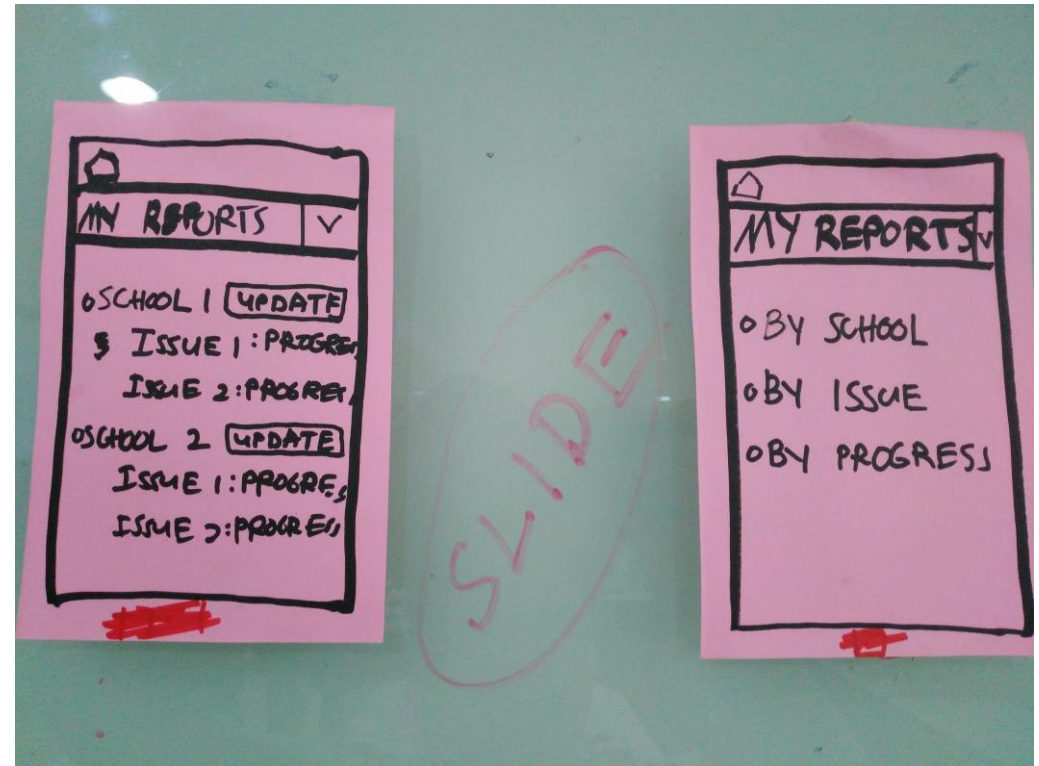 MY REPORTS V
SCHOOL 1 UPDATE
ISSUE 1: PROGRES
ISSUE 2: PROGRES
SCHOOL 2 UPDATE
ISSUE 1: PROGRES
ISSUE 2: PROGRESS
SLIDE
MY REPORTS V
BY SCHOOL
BY ISSUE
BY PROGRESS